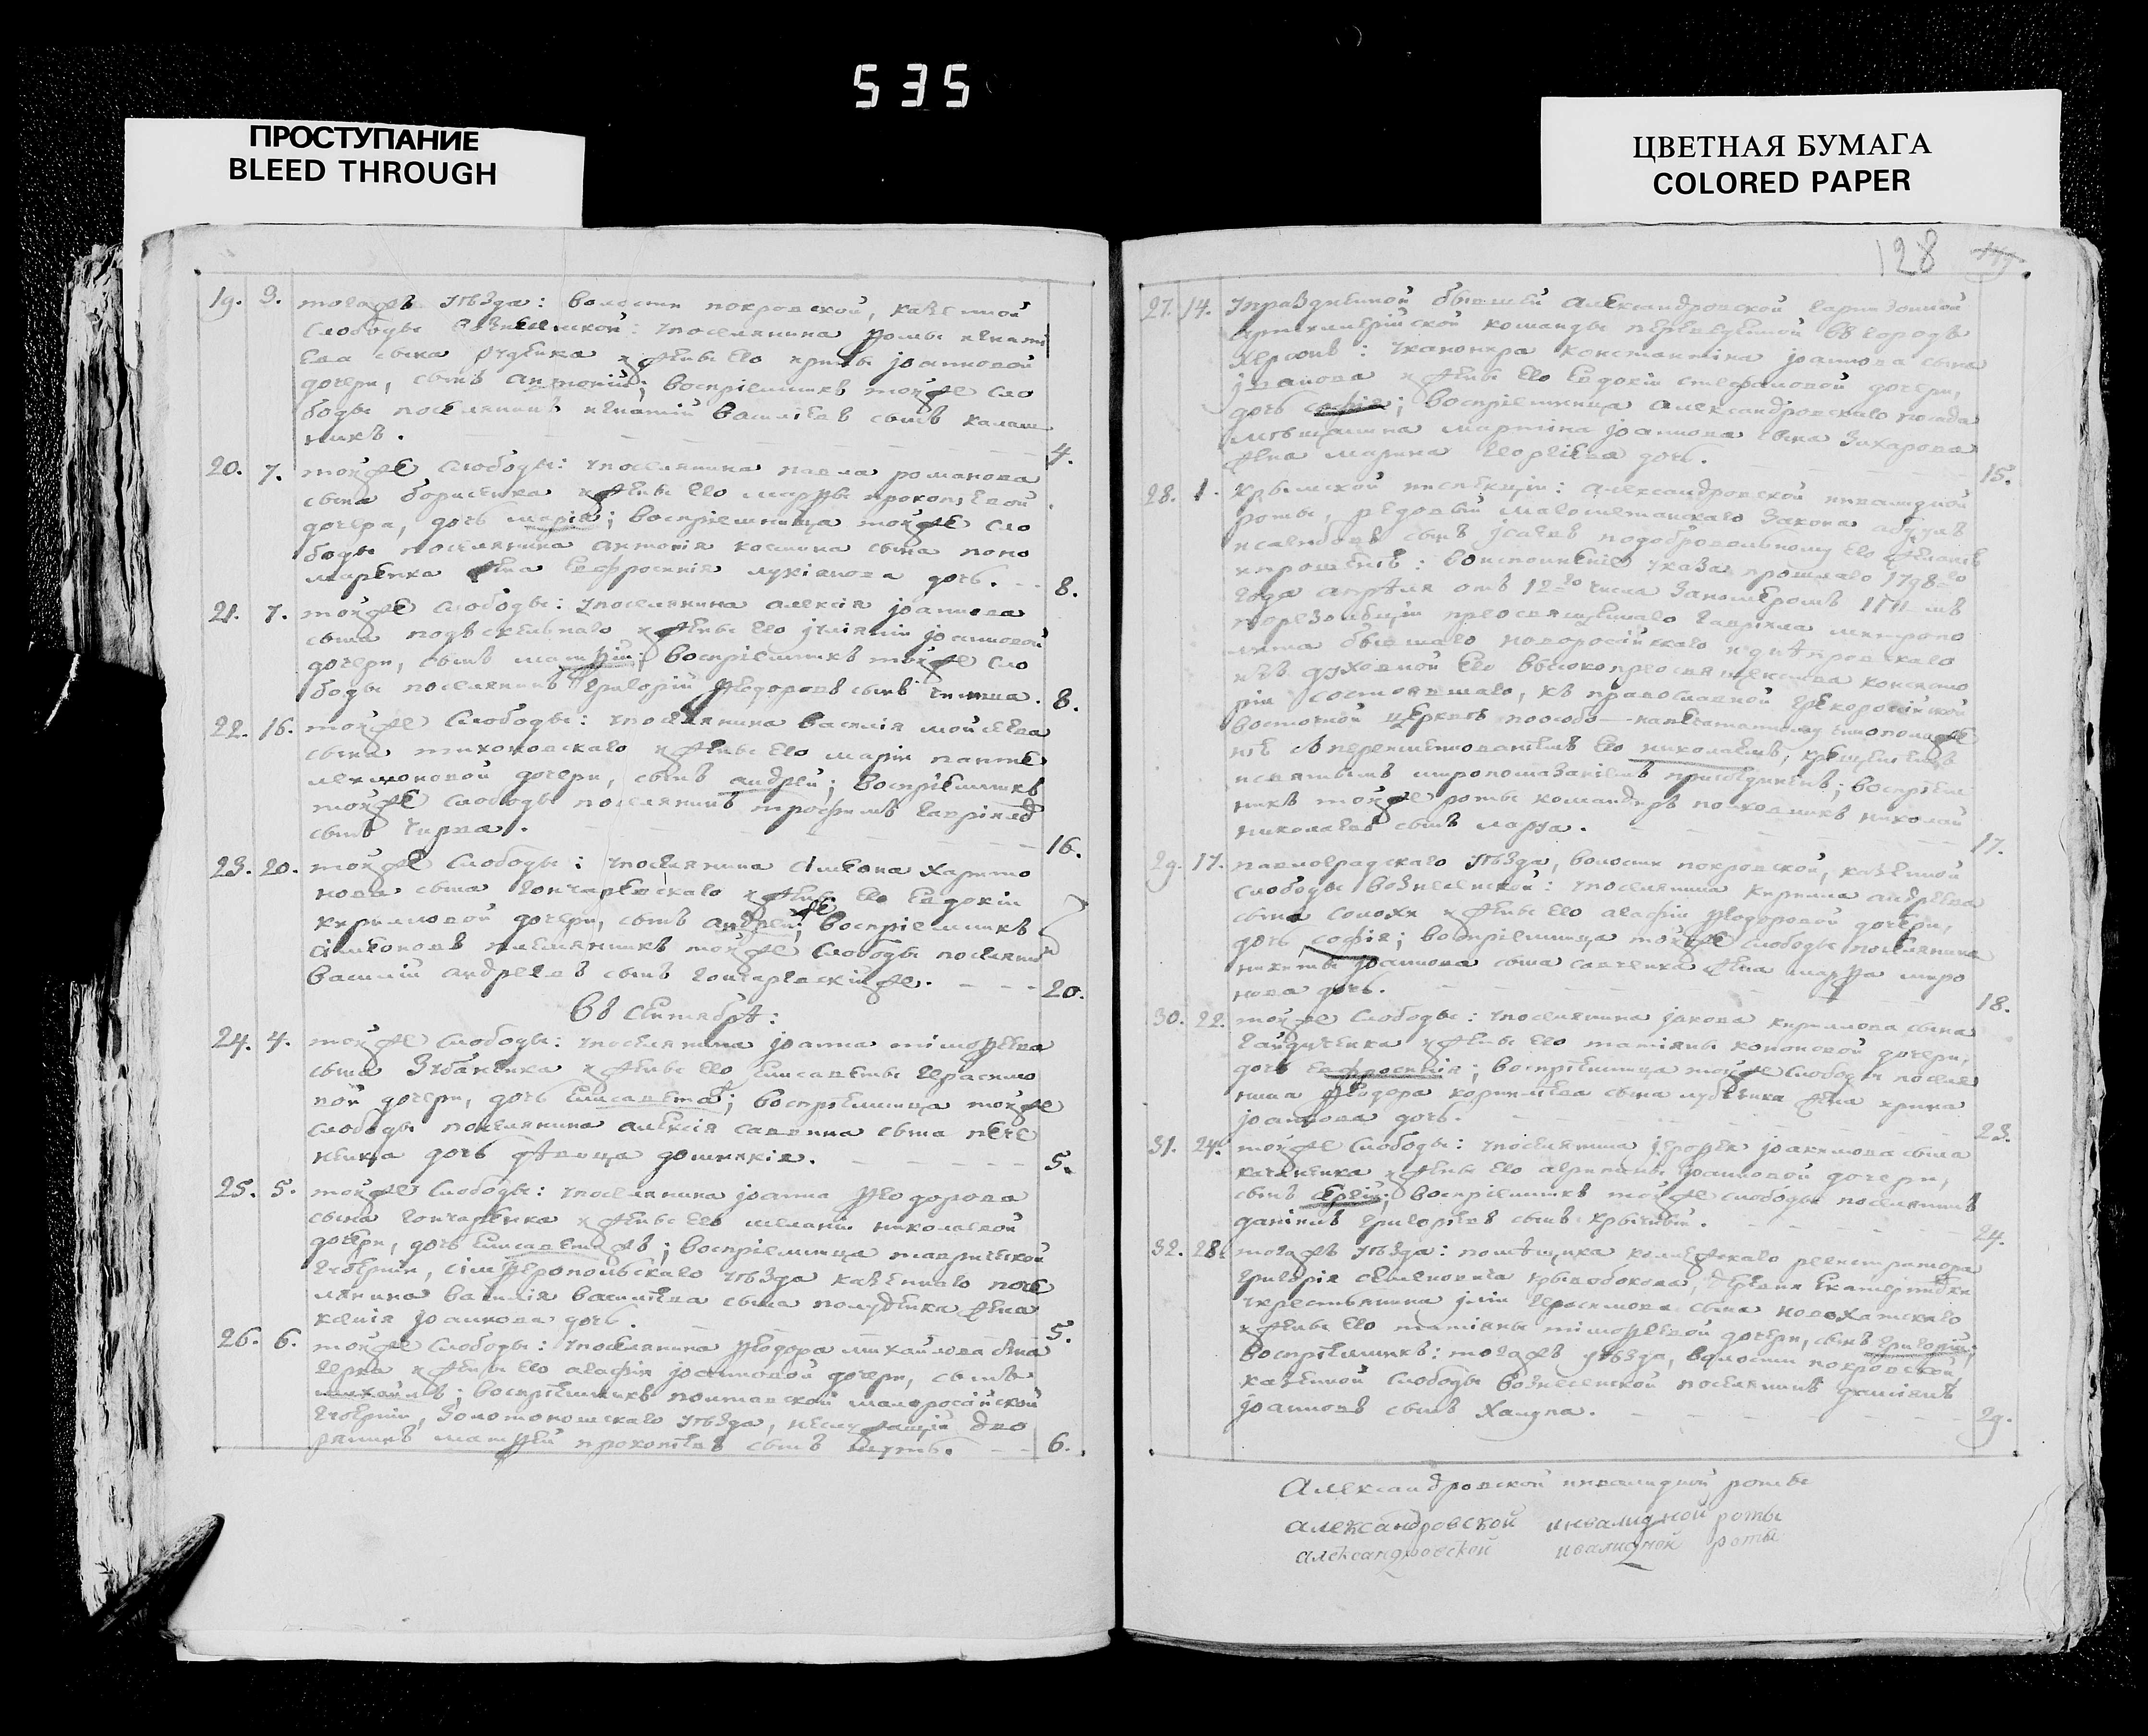 535
ПРОСТУПАНИЕ
BLEED THROUGH
ЦВЕТНАЯ БУМАГА
COLORED PAPER
19. 3. тогажъ уѣзда: волости покровской, казенной
слободы вознесенской: упоселянина
сына руденка иженѣ его ирины іоанновой
дочери, сынъ антоній; воспріемникъ тойже сло
боды поселянинъ игнатій василіевъ сынъ калаш
никъ. 4.
20. 7. тойже слободы: упоселянина павла романова
сына борисенка иженѣ его марѳы прокопіевой
дочери, дочь марія; воспріемница тойже сло
боды поселянина антонія космина сына поно
маренка жена евфросинія лукіянова дочь. 8.
21. 7. тойже слободы: упоселянина алексія іоаннова
сына иженѣ его іуліяніи іоанновой
дочери, сынъ матѳій; воспріемникъ тойже сло
боды поселянинъ григорій ѳеодоровъ сынъ 8.
22. 16. тойже слободы: упоселянина василія мойсеева
сына тихоновскаго иженѣ его маріи панте
леимоновой дочери, сынъ андрей; воспріемникъ
тойже слободы поселянинъ трофимъ гавріиловъ
сынъ чирва. 16.
23. 20. тойже слободы: упоселянина симеона харито
нова сына гончаревскаго иженѣ его евдокіи
кириловой дочери, сынъ андрей; воспріемникъ
симеоновъ племянникъ тойже слободы поселянинъ
василій андреевъ сынъ гончаревскійже. 20.
въ сентябрѣ:
24. 4. тойже слободы: упоселянина іоанна тімоѳеева
сына зубаненка иженѣ его елисаветы герасимо
вой дочери, дочь елисавета; воспріемница тойже
слободы поселянина алексія саввина сына пече
нежца дочь дѣвица домникія. 5.
25. 5. тойже слободы: упоселянина іоанна ѳеодорова
сына гончаренка иженѣ его меланіи николаевой
дочери, дочь елисаветъ; воспріемница таврической
губерніи, сімферопольскаго уѣзда казеннаго посе
лянина василія василіева сына полуденка жена
ксенія іоаннова дочь. 5.
26. 6. тойже слободы: упоселянина ѳеодора михайлова сына
иженѣ его агафіи іоанновой дочери, сынъ
михаилъ; воспріемникъ полтавской малоросійской
губерніи, золотоношскаго уѣзда, неслужащій дво
рянинъ матѳей прокопіевъ сынъ 6.
128
27. 14. упраздненной бывшей александровской гарнизонной
артиллерійской команды переведенной въ городъ
херсонъ: уканонира константина іоаннова сына
іванова иженѣ его евдокіи стефановой дочери,
дочь софія; воспріемница александровскаго посада
мѣщанина мартина іоаннова сына захарова
жена марина георгіева дочь. 15.
28. 1. крымской инспекціи: александровской инвалидной
роты, редовый магометанскаго закона абдулъ
сынъ ісаевъ подобровольному его желанію
ипрошенію: воисполненіе указа прошлаго 1798-го
года апрѣля отъ 12-го числа заномеромъ
порезолюціи преосвященнаго гавріила митропо
лита бывшаго новоросійскаго иднѣпровскаго
изъ духовной его высокопреосвященства консисто
ріи состоявшаго, къ православной грекоросійской
восточной церквѣ пособо-напечатанному чиноположе
нію съпереименованіемъ его николаемъ, крещеніемъ
исвятымъ миропомазаніемъ присоединенъ; воспріем
никъ тойже роты командиръ полковникъ николай
николаевъ сынъ 17.
29. 17. павлоградскаго уѣзда, волости покровской, казенной
слободы вознесенской: упоселянина кирила андреева
сына солохи иженѣ его агафіи ѳеодоровой дочери,
дочь софія; воспріемница тойже слободы поселянина
никиты іоаннова сына савченка жена марѳа миро
нова дочь. 18.
30. 22. тойже слободы: упоселянина іакова кирилова сына
гайдученка иженѣ его татіяны кононовой дочери,
дочь евфросинія; воспріемница тойже слободы поселя
нина ѳеодора корниліева сына жена ирина
іоаннова дочь. 23.
31. 24. тойже слободы: упоселянина іероѳея іоакимова сына
иженѣ его агрипины іоанновой дочери,
сынъ сергій; воспріемникъ тойже слободы поселянинъ
даніилъ григоріевъ сынъ 24.
32. 28. тогажъ уѣзда: помѣщика колежскаго регистратора
григорія семеновича кривобокова, деревни
укрестьянина іліи герасимова сына новохатскаго
иженѣ его татіяны тімоѳеевой дочери, сынъ григорій;
воспріемникъ: тогажъ уѣзда, волости покровской,
казенной слободы вознесенской поселянинъ даміянъ
іоанновъ сынъ халупа. 29.
Александровской инвалидной роты
александровской инвалидной роты
александровской ивалидной роты